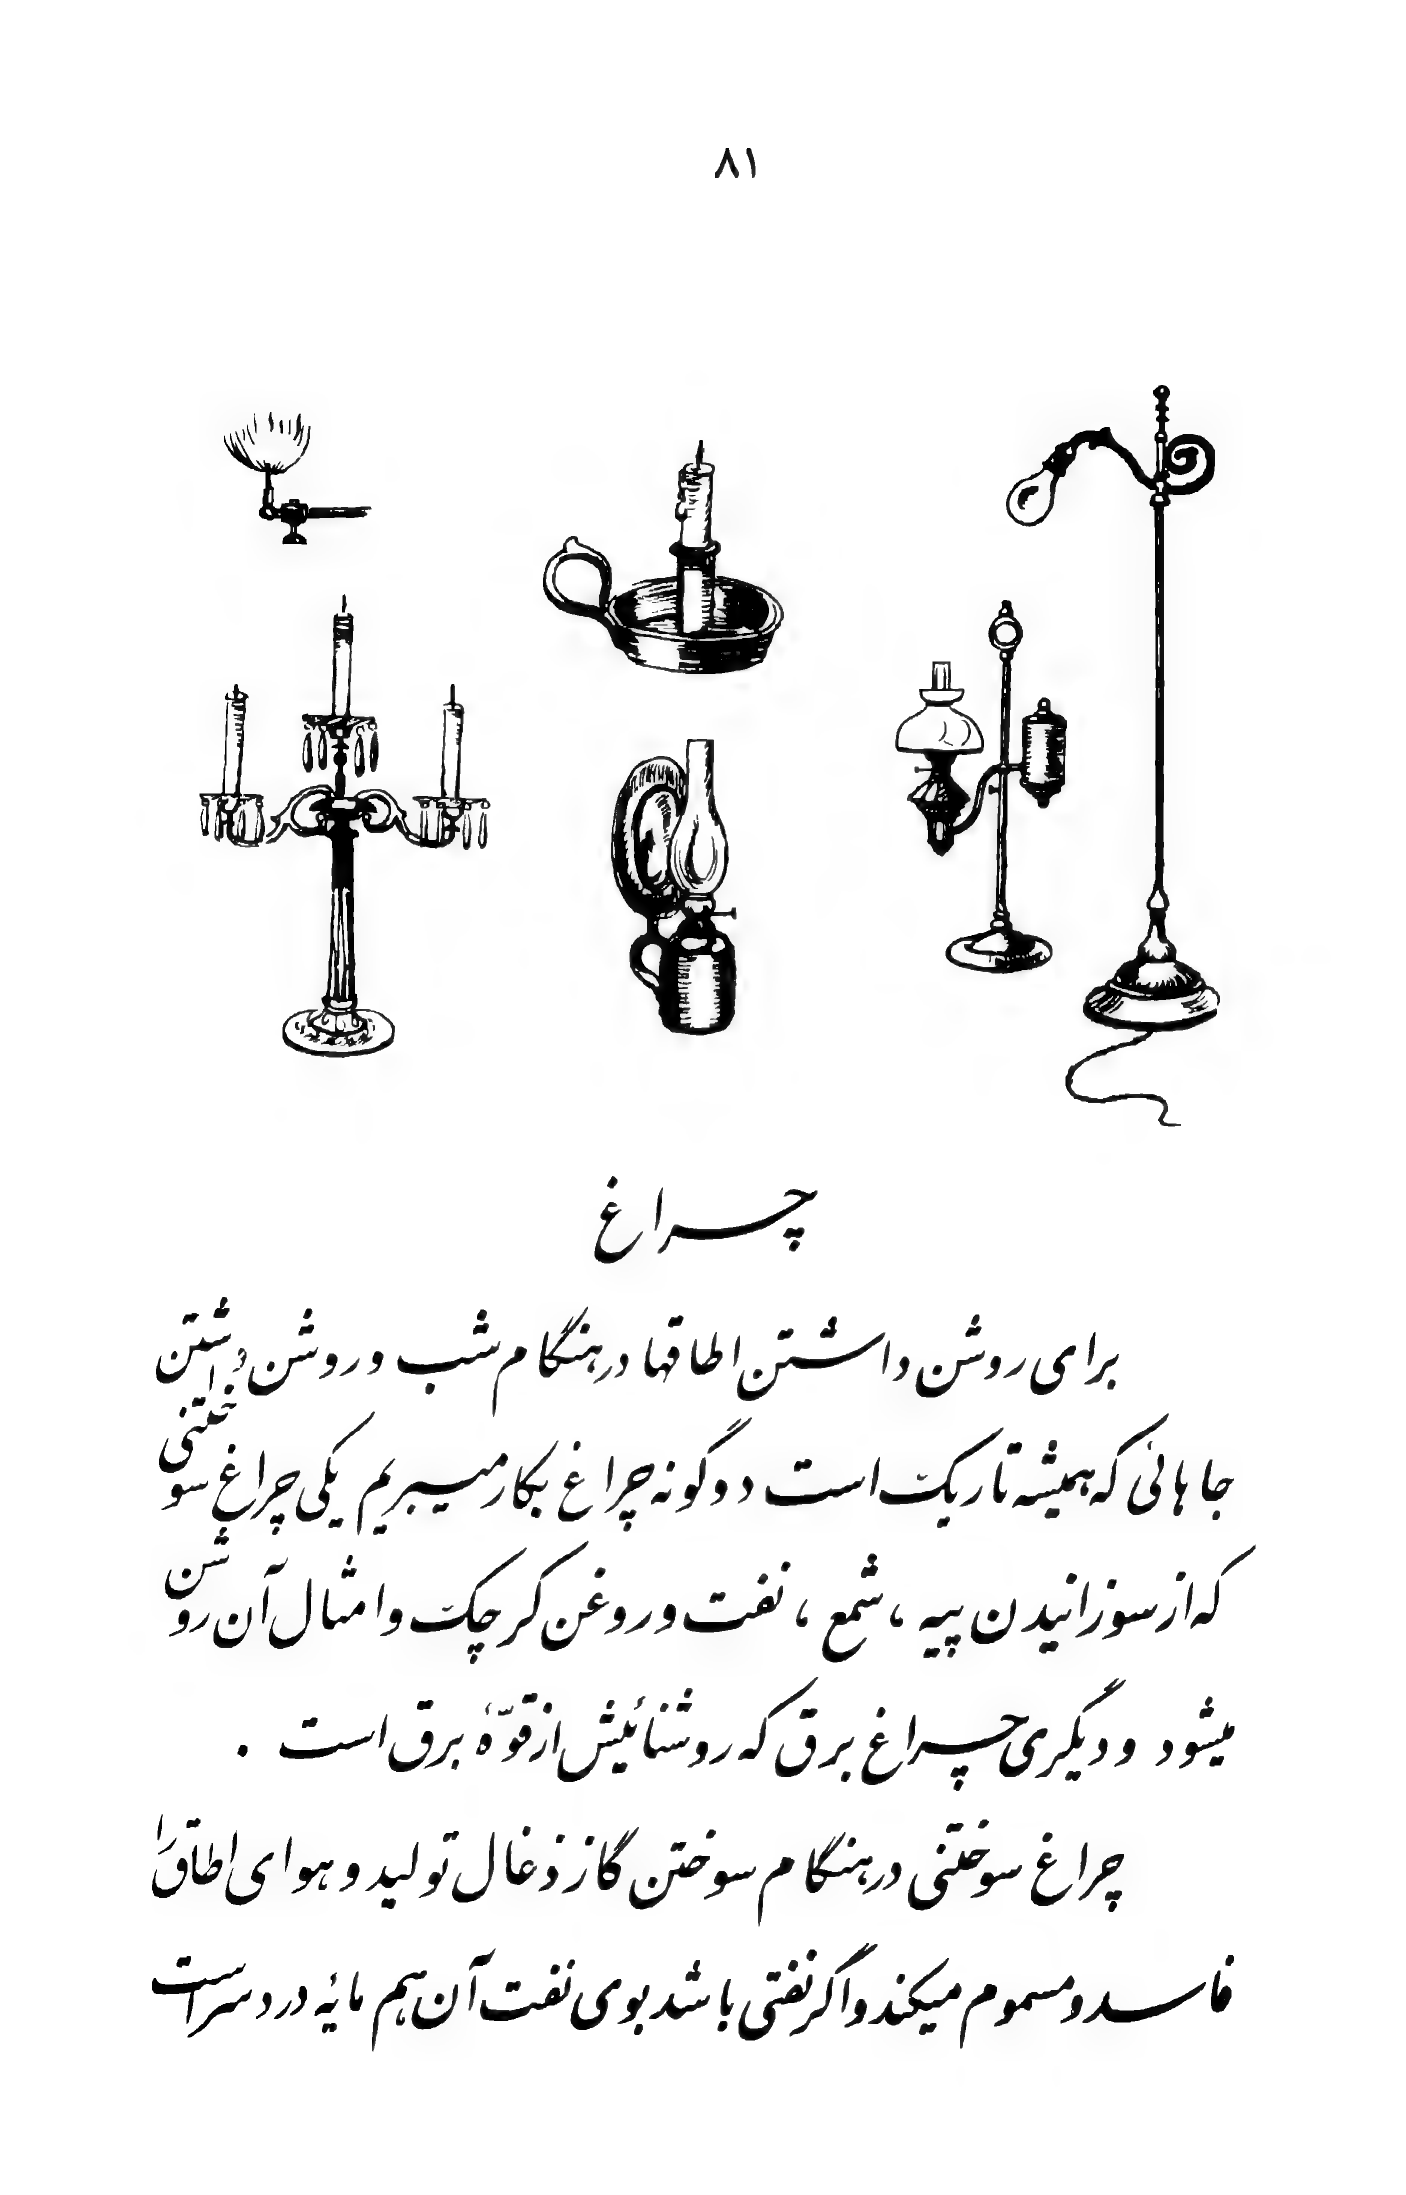 ۸۱
چراغ
برای روشن داشتن اطاقها در هنگام شب و روشن داشتن
جاهائی که همیشه تاریک است دوگونه چراغ بکار میبریم یکی چراغ سوختنی
که از سوزانیدن پیه ، شمع ، نفت و روغن کرچک و امثال آن روشن
میشود و دیگری چراغ برق که روشنائیش از قوّهٔ برق است .
چراغ سوختنی در هنگام سوختن گاز ذغال تولید و هوای اطاق را
فاسد و مسموم میکند و اگر نفتی باشد بوی نفت آن هم مایهٔ دردسر است